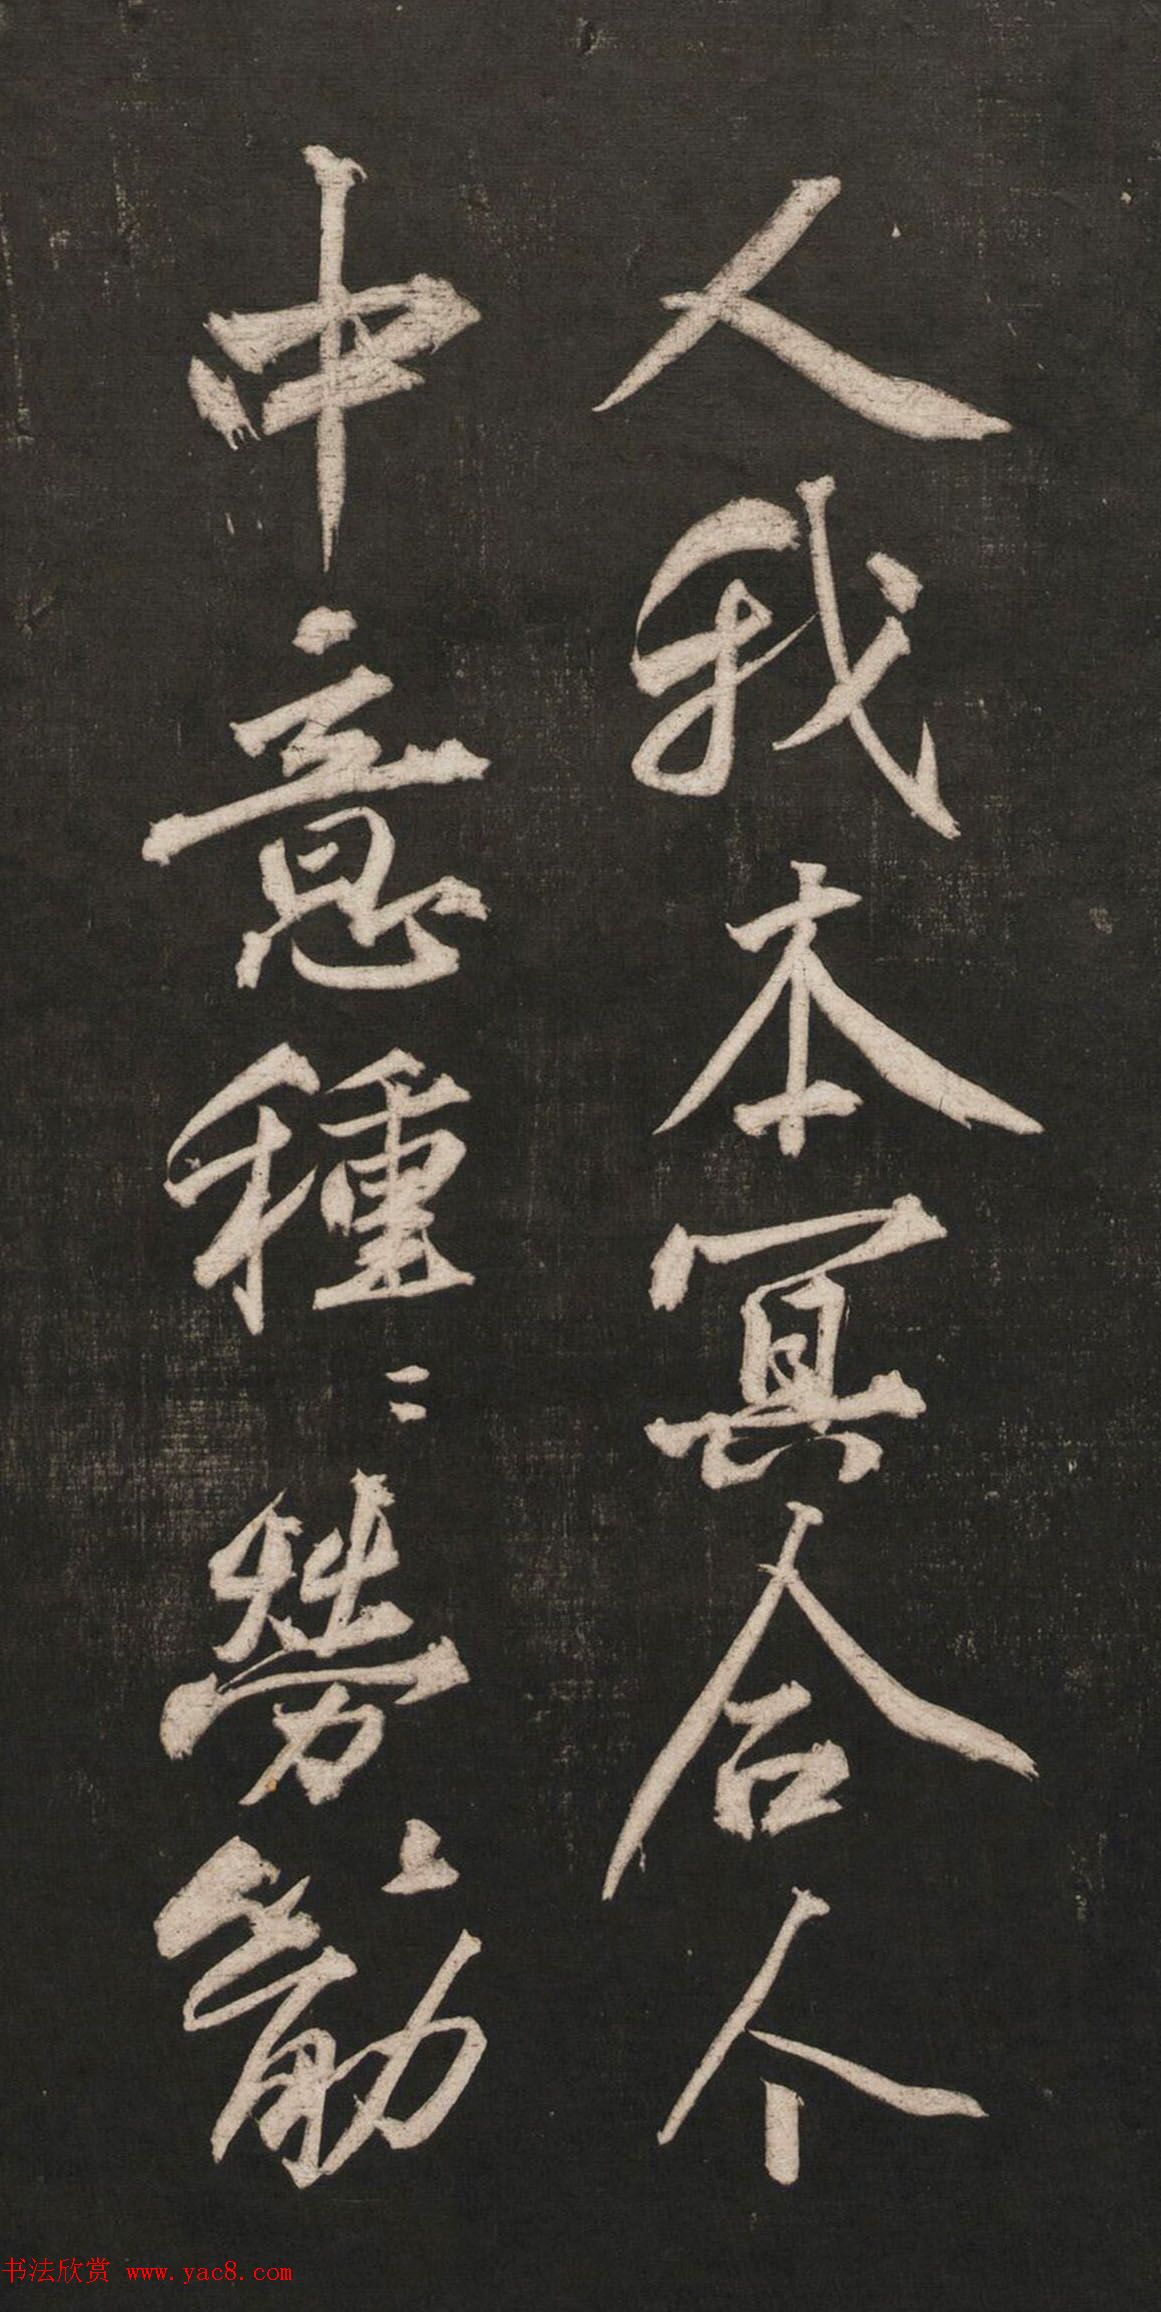 人我本冥合个
中意種〻勞〻筋
书法欣赏 www.yac8.com